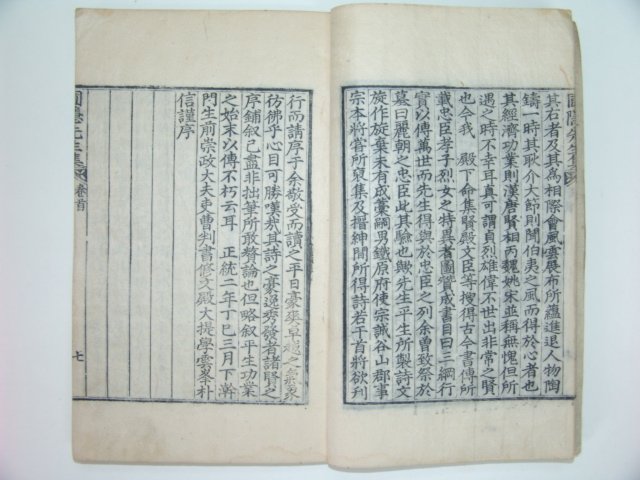 其右者及其爲相際會風雲展布所蘊進退人物陶
鑄一時其耿介大節則聞伯夷之風而得於心者也
其經濟功業則漢唐賢相丙魏姚宋並稱無愧但所
遇之時不幸耳真可謂貞烈雄偉不世出非常之賢
也今我 殿下命集賢殿文臣等搜得古今書傳所
載忠臣孝子烈女之特異者圖贊成書目曰三綱行
實以傳萬世而先生得與於忠臣之列余曾致祭於
墓曰麗朝之忠臣此其驗也歟先生平生所製詩文
旋作旋棄未有成藁嗣男鐵原府使宗誠谷山郡事
宗本將嘗所裒集及搢紳間所得詩若干首將欲刊
行而請序于余敬受而讀之平日豪爽卓越之氣象
彷彿乎心目可勝嘆哉其詩之豪逸秀發有諸賢之
序鋪叙已盡非拙筆所敢贅論也但略叙平生功業
之始末以傳不朽云耳 正統二年丁巳三月下澣
門生前崇政大夫吏曹判書修文殿大提學雲峯朴
信謹序
圃隱先生集 卷首
七